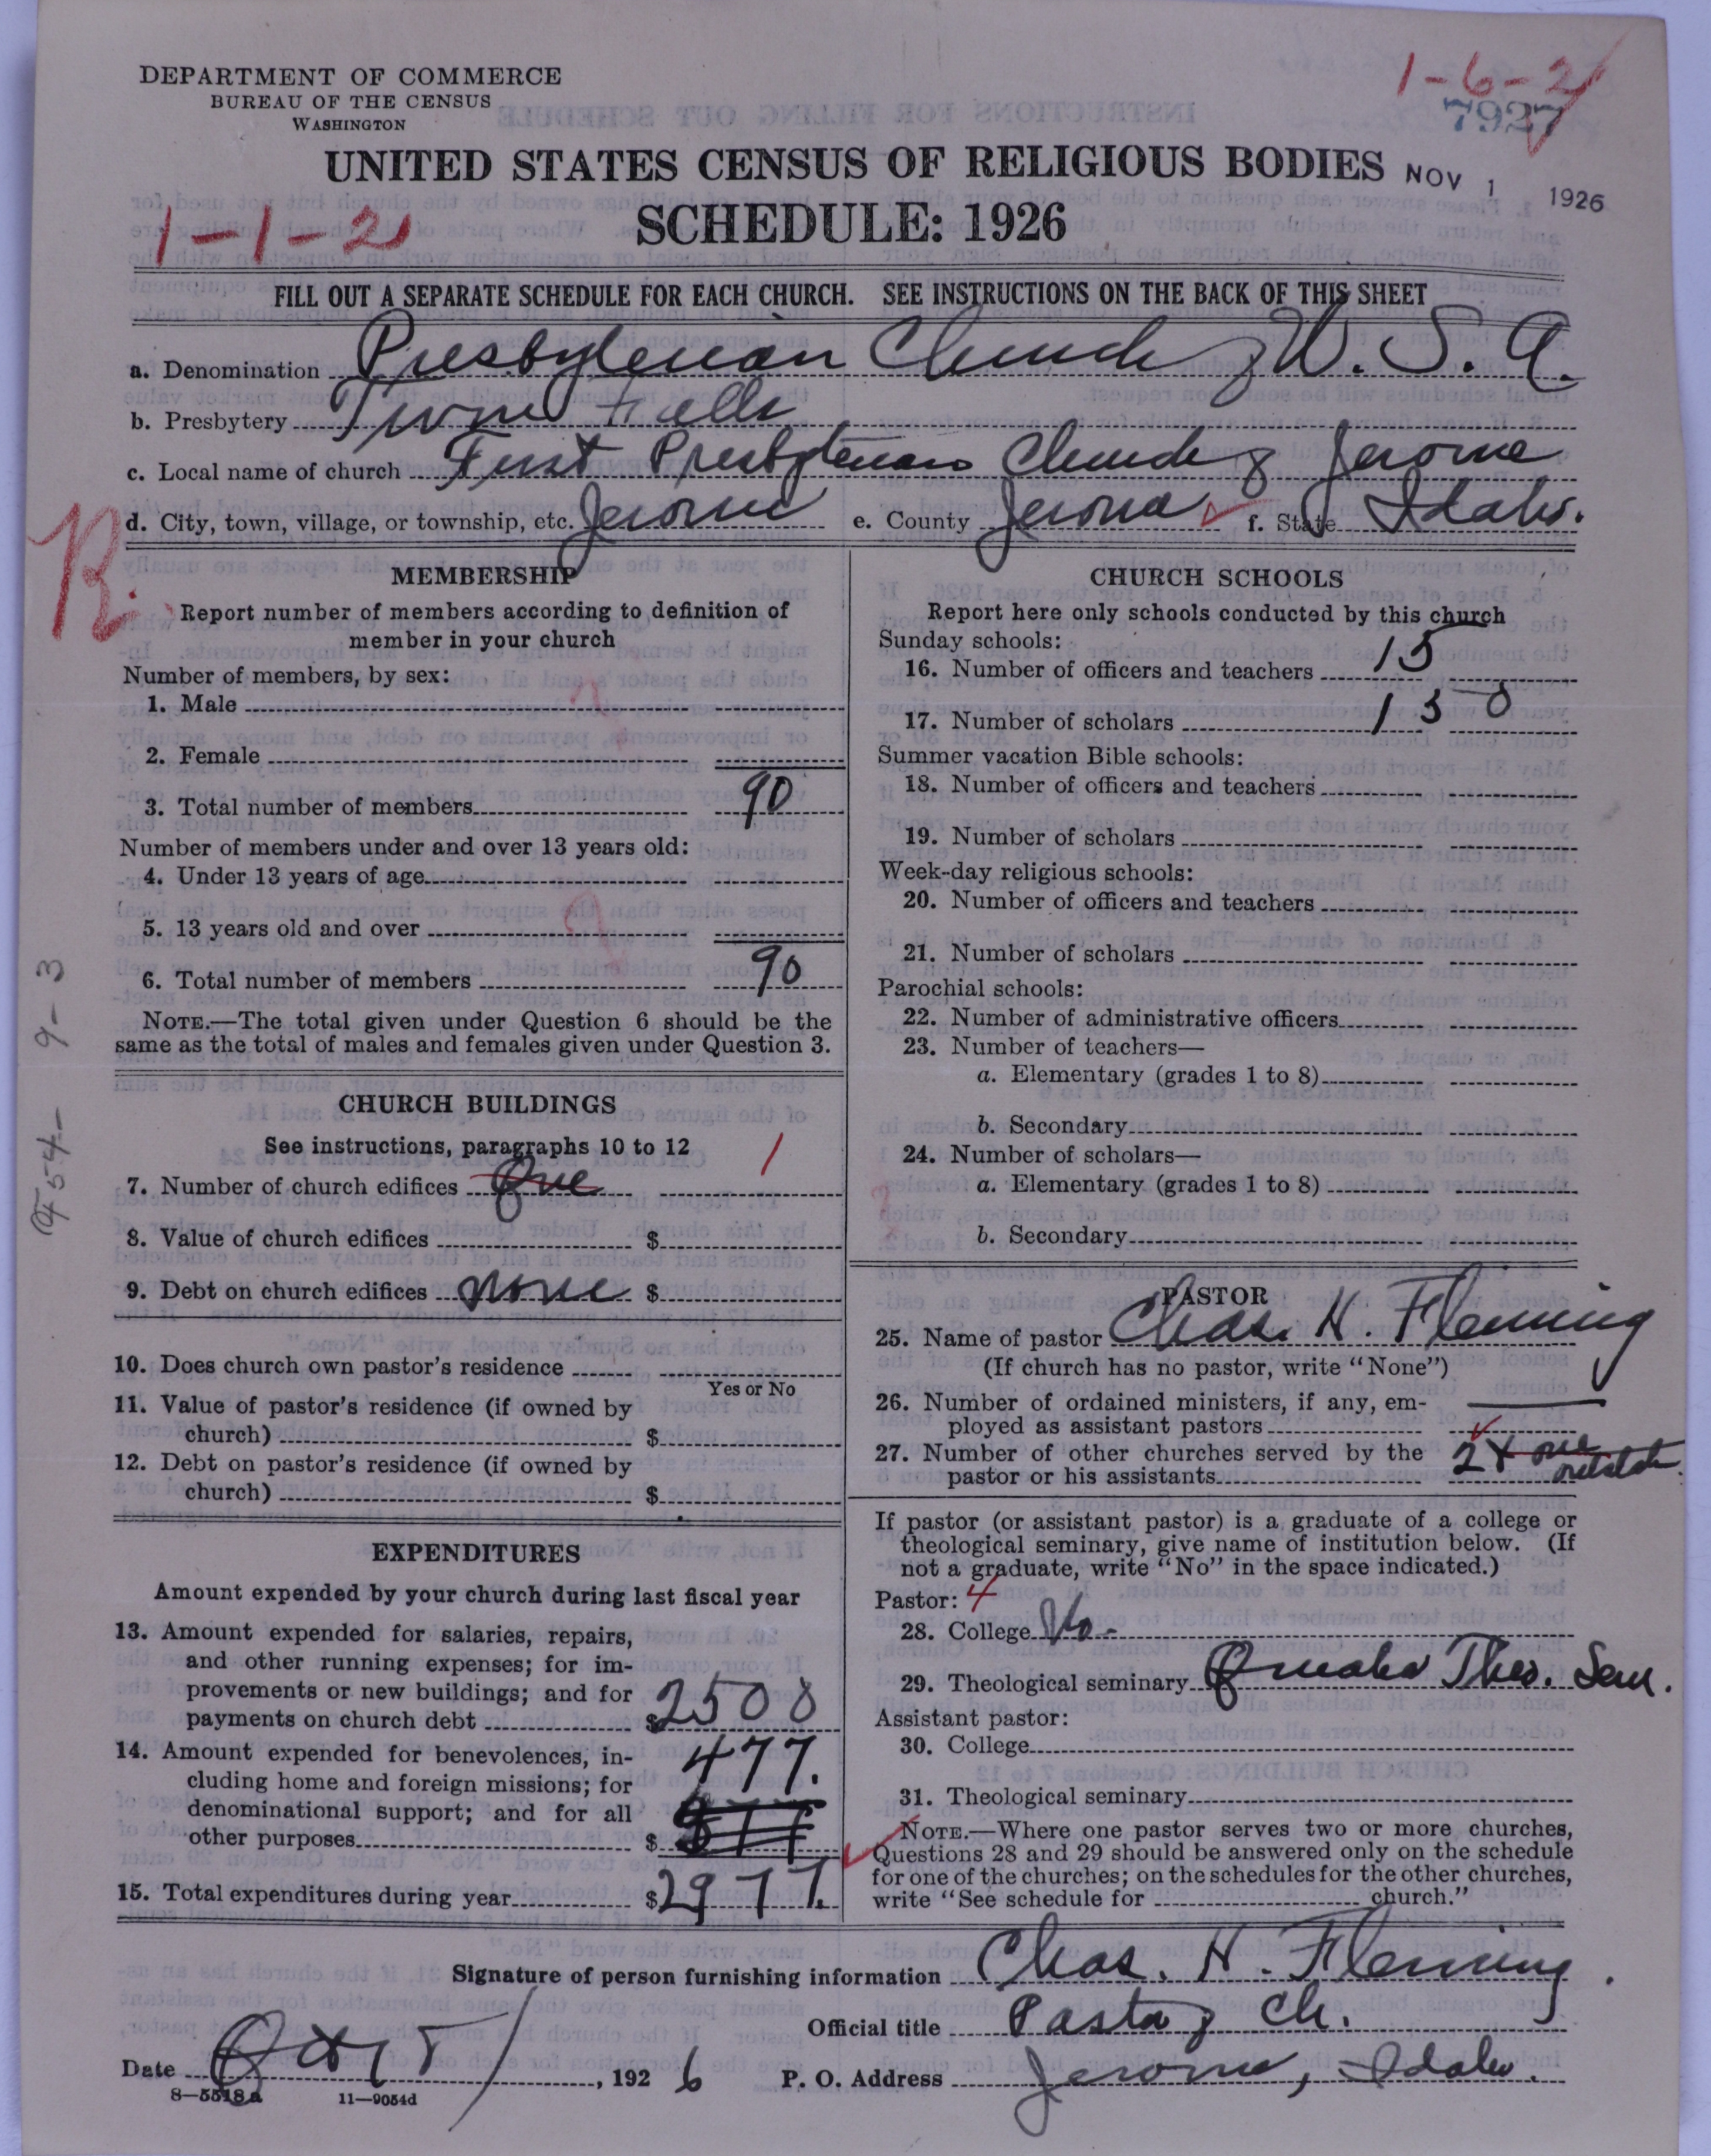 DEPARTMENT OF COMMERCE
BUREAU OF THE CENSUS
WASHINGTON
1-6-2
7927
UNITED STATES CENSUS OF RELIGIOUS BODIES
NOV 1 1926
1-1-21
SCHEDULE: 1926
FILL OUT A SEPARATE SCHEDULE FOR EACH CHURCH. SEE INSTRUCTIONS ON THE BACK OF THIS SHEET
a. Denomination Presbyterian Church of U. S. A.
b. Presbytery Twin Falls
c. Local name of church First Presbyterian Church of Jerome
d. City, town, village, or township, etc. Jerome e. County Jerome f. State Idaho.
MEMBERSHIP
Report number of members according to definition of
member in your church
Number of members, by sex:
1. Male
2. Female
3. Total number of members 90
Number of members under and over 13 years old:
4. Under 13 years of age
5. 13 years old and over
6. Total number of members 90
NOTE.—The total given under Question 6 should be the
same as the total of males and females given under Question 3.
CHURCH BUILDINGS
See instructions, paragraphs 10 to 12
7. Number of church edifices One 1
8. Value of church edifices $
9. Debt on church edifices none $
10. Does church own pastor's residence
Yes or No
11. Value of pastor's residence (if owned by
church) $
12. Debt on pastor's residence (if owned by
church) $
EXPENDITURES
Amount expended by your church during last fiscal year
13. Amount expended for salaries, repairs,
and other running expenses; for im-
provements or new buildings; and for
payments on church debt $2500
14. Amount expended for benevolences, in-
cluding home and foreign missions; for
denominational support; and for all
other purposes $ 477.
15. Total expenditures during year $2977.
CHURCH SCHOOLS
Report here only schools conducted by this church
Sunday schools:
16. Number of officers and teachers 15
17. Number of scholars 150
Summer vacation Bible schools:
18. Number of officers and teachers
19. Number of scholars
Week-day religious schools:
20. Number of officers and teachers
21. Number of scholars
Parochial schools:
22. Number of administrative officers
23. Number of teachers—
a. Elementary (grades 1 to 8)
b. Secondary
24. Number of scholars—
a. Elementary (grades 1 to 8)
b. Secondary
PASTOR
25. Name of pastor Chas. H. Fleming
(If church has no pastor, write "None")
26. Number of ordained ministers, if any, em-
ployed as assistant pastors
27. Number of other churches served by the
pastor or his assistants 2 one
If pastor (or assistant pastor) is a graduate of a college or
theological seminary, give name of institution below. (If
not a graduate, write "No" in the space indicated.)
Pastor: 4
28. College No-
29. Theological seminary Omaha Theo. Sem.
Assistant pastor:
30. College
31. Theological seminary
NOTE.—Where one pastor serves two or more churches,
Questions 28 and 29 should be answered only on the schedule
for one of the churches; on the schedules for the other churches,
write "See schedule for church."
Signature of person furnishing information Chas. H. Fleming.
Official title Pastor of Ch.
Date Oct 5/, 1926 P. O. Address Jerome, Idaho.
8—5518a 11—9054d